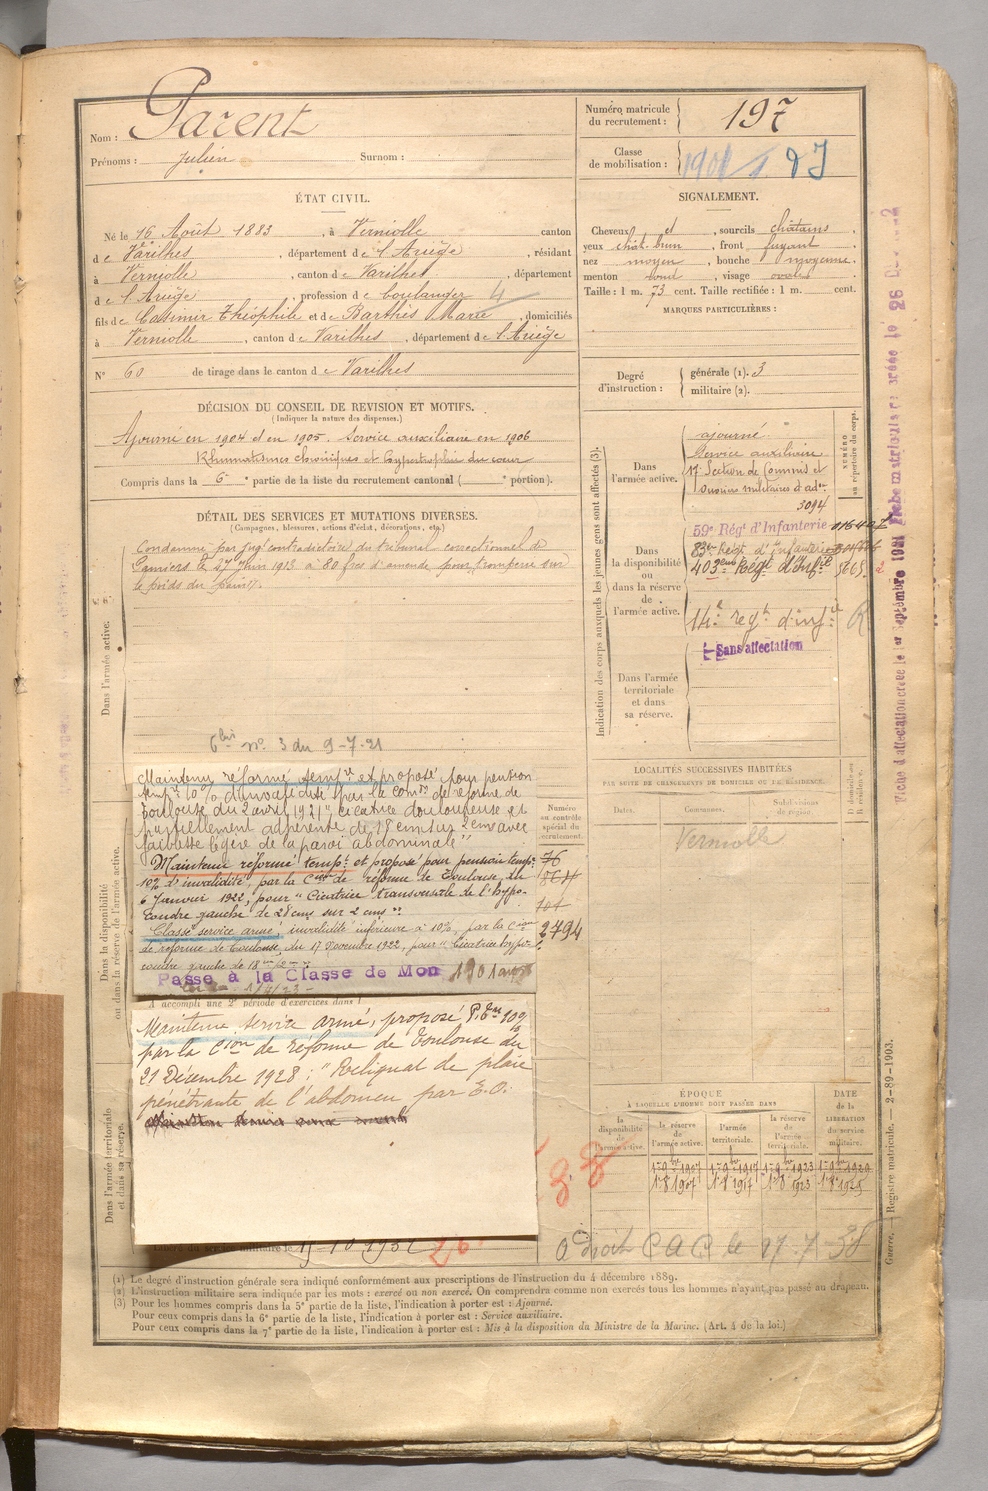 Nom : Parent
Prénoms : Julien Surnom :
Numéro matricule du recrutement : 197
Classe de mobilisation : 1901
ÉTAT CIVIL.
Né le 16 Août 1883, à Verniolle canton
de Varilhes, département de l'Ariège, résidant
à Verniolle, canton de Varilhes, département
de l'Ariège, profession de boulanger 4
fils de Casimir Théophile et de Barthès Marie, domiciliés
à Verniolle, canton de Varilhes, département de l'Ariège
N° 60 de tirage dans le canton de Varilhes
SIGNALEMENT.
Cheveux et, sourcils châtains
yeux chât. brun, front fuyant
nez moyen, bouche moyenne.
menton rond, visage ovale
Taille : 1 m. 73 cent. Taille rectifiée : 1 m. cent.
MARQUES PARTICULIÈRES :
Degré d'instruction : générale (1). 3
militaire (2).
DÉCISION DU CONSEIL DE REVISION ET MOTIFS.
(Indiquer la nature des dispenses.)
Ajourné en 1904 et en 1905. Service auxiliaire en 1906
Rhumatismes chroniques et hypertrophie du cœur
Compris dans la 6e partie de la liste du recrutement cantonal ( e portion).
DÉTAIL DES SERVICES ET MUTATIONS DIVERSES.
(Campagnes, blessures, actions d'éclat, décorations, etc.)
Condamné par jugt contradictoire du tribunal correctionnel de
Pamiers le 27 Juin 1913 à 80 frcs d'amende pour "tromperie sur
le poids du pain".
Dans l'armée active.
6 bis n° 3 du 9-7-21
Maintenu réformé tempre et proposé pour pension
tempre 10 % d'invalidité par la Comon de réforme de
Toulouse du 2 avril 1921 "cicatrice douloureuse et
partiellement adhérente de 18 cm sur 2 cm avec
faiblesse légère de la paroi abdominale"
Maintenu réformé tempre et proposé pour pension tempre
10% d'invalidité, par la Cion de réforme de Toulouse, du
6 Janvier 1922, pour "Cicatrice transversale de l'hypo-
condre gauche de 28 cms sur 2 cms"
Classé service armé, invalidité inférieure à 10%, par la Cion
de réforme de Toulouse, du 17 Novembre 1922, pour "Cicatrice hypo-
condre gauche de 18
Passe à la Classe de Mon 1901
1/4/23
A accompli une 2e période d'exercices dans l
Maintenu service armé, proposé P. 10%
par la Cion de réforme de Toulouse du
21 Décembre 1928 : "Reliquat de plaie
pénétrante de l'abdomen par E.O.
Dans la disponibilité ou dans la réserve de l'armée active.
Dans l'armée territoriale et dans sa réserve.
du service militaire le
Numéro au contrôle spécial du recrutement.
76
101
2794
Indication des corps auxquels les jeunes gens sont affectés (3).
NUMÉRO au répertoire du corps.
Dans l'armée active.
ajourné.
Service auxiliaire
17e Section de Commis et
Ouvriers militaires d'adon
3094
Dans la disponibilité ou dans la réserve de l'armée active.
59e Régt d'Infanterie
83e Régt d'infanterie
403eme Régt d'Infie
14e regt d'infie
Sans affectation
Dans l'armée territoriale et dans sa réserve.
LOCALITÉS SUCCESSIVES HABITÉES
PAR SUITE DE CHANGEMENTS DE DOMICILE OU DE RÉSIDENCE.
Dates. Communes. Subdivisions de région. D domicile ou R résidence.
Verniolle
ÉPOQUE
À LAQUELLE L'HOMME DOIT PASSER DANS
la disponibilité de l'armée active. la réserve de l'armée active. l'armée territoriale. la réserve de l'armée territoriale.
DATE de la LIBÉRATION du service militaire.
1-8 1907 1-8 1917 1-8 1923
88
A droit C A C le 27-7-38
(1) Le degré d'instruction générale sera indiqué conformément aux prescriptions de l'instruction du 4 décembre 1889.
(2) L'instruction militaire sera indiquée par les mots : exercé ou non exercé. On comprendra comme non exercés tous les hommes n'ayant pas passé au drapeau.
(3) Pour les hommes compris dans la 5e partie de la liste, l'indication à porter est : Ajourné.
Pour ceux compris dans la 6e partie de la liste, l'indication à porter est : Service auxiliaire.
Pour ceux compris dans la 7e partie de la liste, l'indication à porter est : Mis à la disposition du Ministre de la Marine. (Art. 4 de la loi.)
Guerre. Registre matricule. — 2-89-1903.